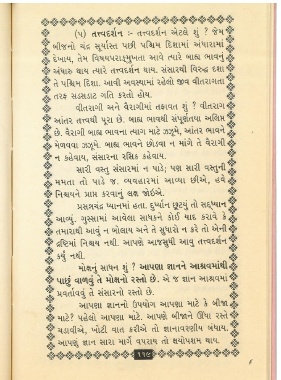 (૫) તત્ત્વદર્શન :- તત્ત્વદર્શન એટલે શું ? જેમ
બીજનો ચંદ્ર સૂર્યાસ્ત પછી પશ્ચિમ દિશામાં અંધારામાં
દેખાય, તેમ વિષયપરાઙ્મુખતા આવે ત્યારે બાહ્ય ભાવનું
અંધારુ થાય ત્યારે તત્ત્વદર્શન થાય. સંસારથી વિરુદ્ધ દશા
તે પશ્ચિમ દિશા. આવી અવસ્થામાં રહેલો જીવ વીતરાગતા
તરફ સડસડાટ ગતિ કરતો હોય.
વીતરાગી અને વૈરાગીમાં તફાવત શું ? વીતરાગ
આંતર તત્ત્વથી પૂરા છે. બાહ્ય ભાવથી સંપૂર્ણતયા અલિપ્ત
છે. વૈરાગી બાહ્ય ભાવના ત્યાગ માટે ઝઝૂમે, આંતર ભાવને
મેળવવા ઝઝૂમે. બાહ્ય ભાવને છોડવા ન માંગે તે વૈરાગી
ન કહેવાય, સંસારના રસિક કહેવાય.
સારી વસ્તુ સંસારમાં ન પાડે; પણ સારી વસ્તુની
મમતા તો પાડે જ. વ્યવહારમાં આવ્યા છીએ, હવે
નિશ્ચયને પ્રાપ્ત કરવાનું લક્ષ જોઈએ.
પ્રસન્નચંદ્ર ધ્યાનમાં હતા. દુર્ધ્યાન છૂટયું તો સદ્ધ્યાન
આવ્યું. ગુસ્સામાં આવેલા સાધકને કોઈ યાદ કરાવે કે
તમારાથી આવું ન બોલાય અને તે સુધારો ન કરે તો એની
દ્રષ્ટિમાં નિશ્ચય નથી. આપણે આજસુધી આવું તત્ત્વદર્શન
કર્યું નથી.
મોક્ષનું સાધન શું ? આપણા જ્ઞાનને આશ્રવમાંથી
પાછું વાળવું તે મોક્ષનો રસ્તો છે. એ જ જ્ઞાન આશ્રવમાં
પ્રવર્તાવવું તે સંસારનો રસ્તો છે.
આપણા જ્ઞાનનો ઉપયોગ આપણા માટે કે બીજા
માટે? પહેલો આપણા માટે. આપણે બીજાને ઊંધા રસ્તે
ચડાવીએ, ખોટી વાત કરીએ તો જ્ઞાનાવરણીય બંધાય.
આપણું જ્ઞાન સારા માર્ગે વપરાય તો ક્ષયોપશમ થાય.
૧૧૯